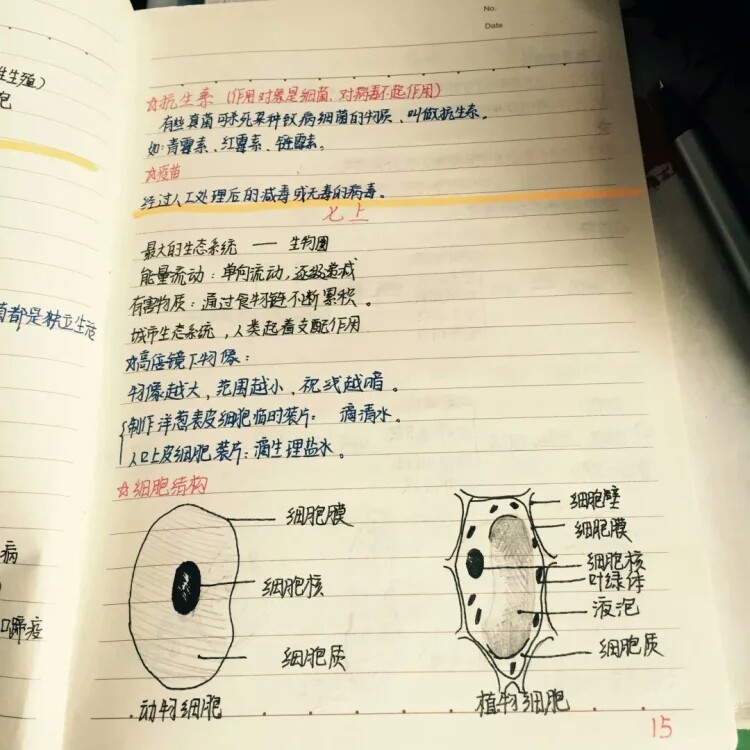 No.
Date
生殖)
胞
菌都是独立生活
病
口蹄疫
☆抗生素(作用对象是细菌、对病毒不起作用)
有些真菌可杀死某种致病细菌的物质、叫做抗生素。
如:青霉素、红霉素、链霉素。
☆疫苗
经过人工处理后的减毒或无毒的病毒。
七上
最大的生态系统 — 生物圈
能量流动:单向流动,逐级递减
有害物质:通过食物链不断累积。
城市生态系统,人类起着支配作用
☆高倍镜下物像:
物像越大,范围越小、视线越暗。
制作洋葱表皮细胞临时装片: 滴清水。
人口上皮细胞装片:滴生理盐水。
☆细胞结构
细胞膜
细胞核
细胞质
动物细胞
细胞壁
细胞膜
细胞核
叶绿体
液泡
细胞质
植物细胞
15